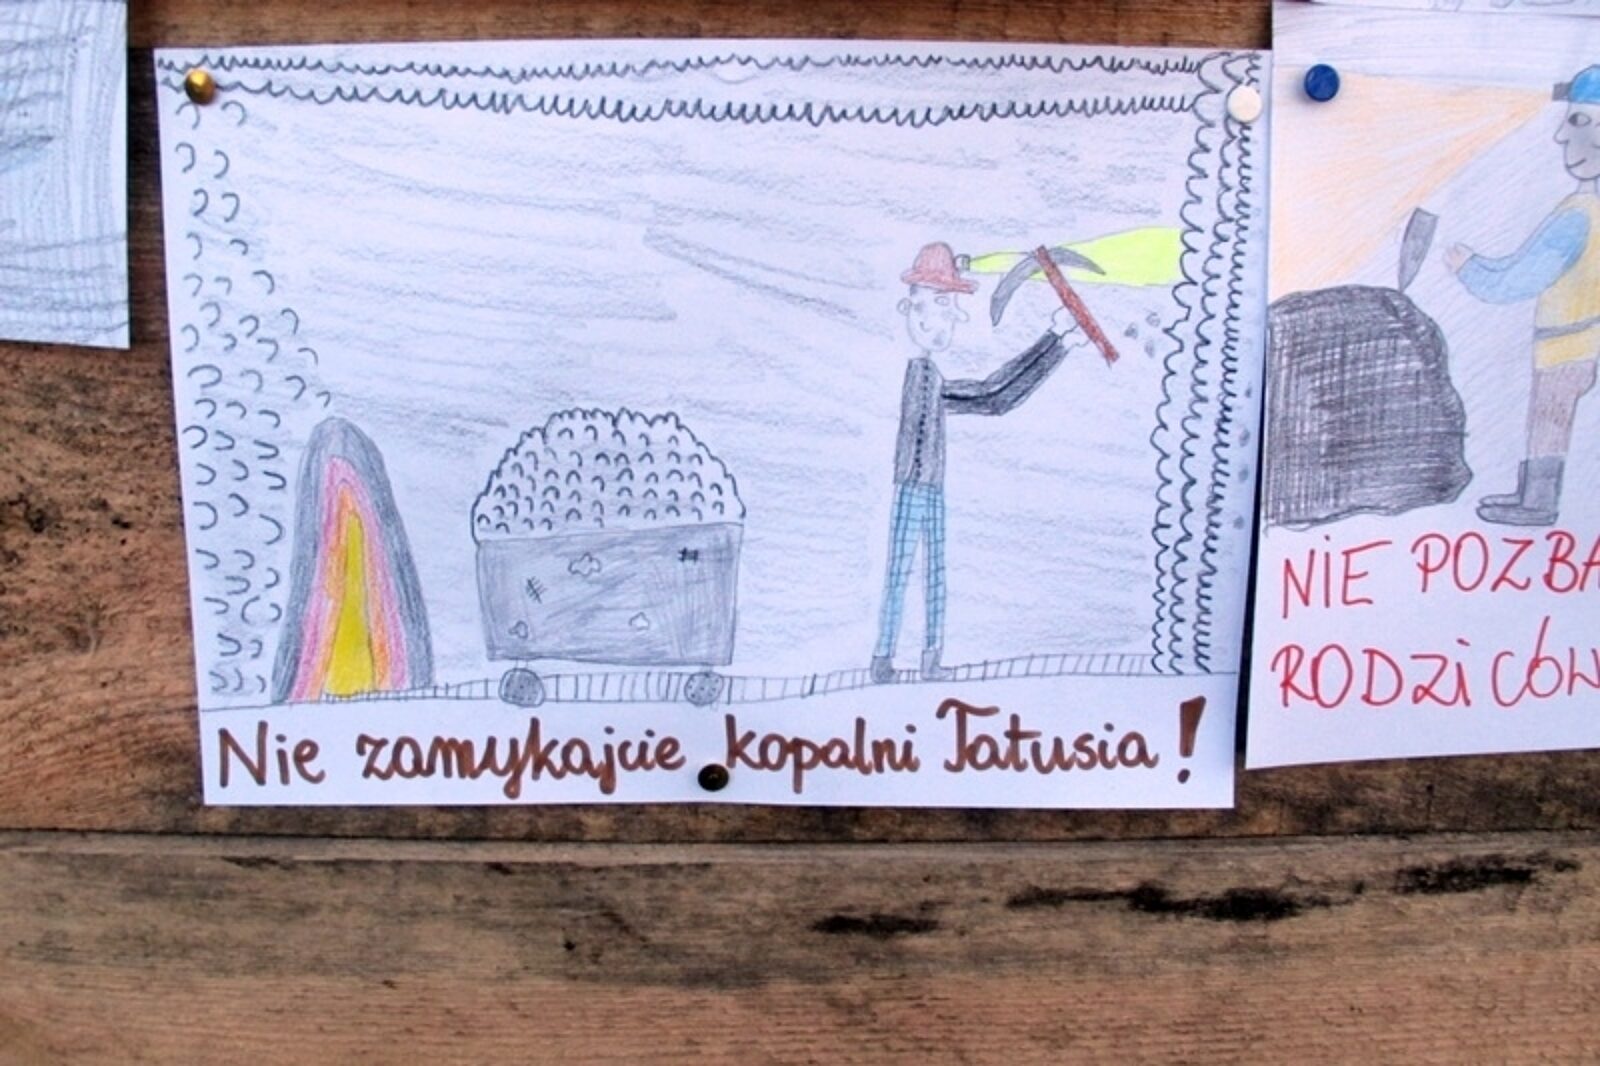 Nie zamykajcie kopalni Tatusia!
NIE POZBA
RODZiCÓW